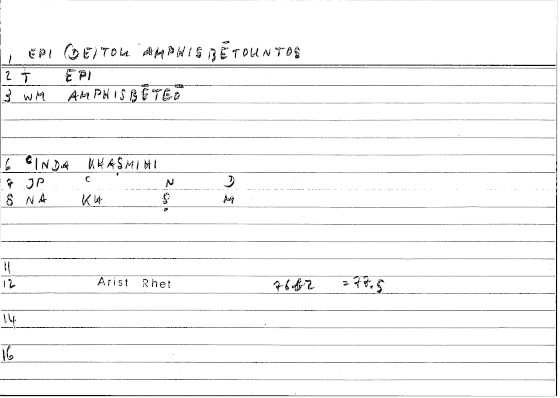 1 EPI (DE) TOU AMPHISBĒTOUNTOS
2 T EPI
3 WM AMPHISBĒTEŌ
6 ʿINDA KHAṢMIHI
7 JP ʿ N D
8 NA KH Ṣ M
11
12 Arist Rhet 76b2 = 77.5
14
16